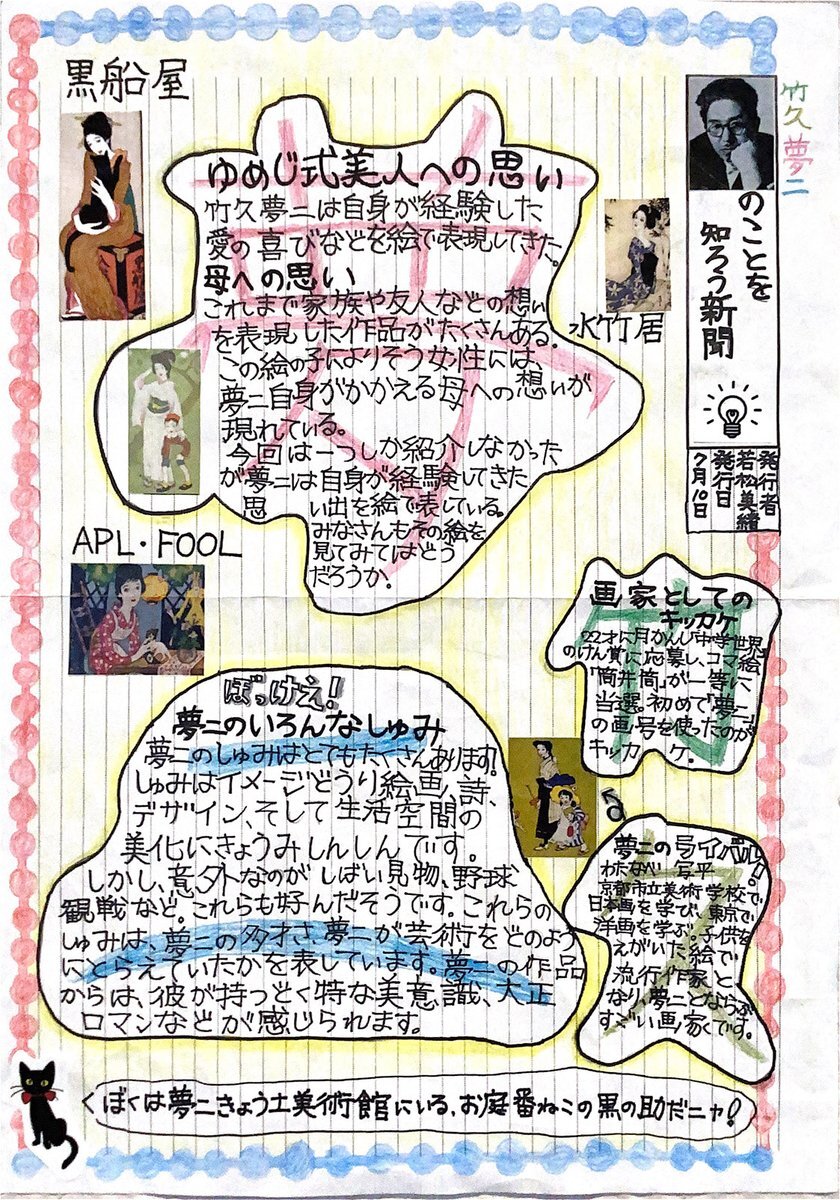 竹久夢二
のことを
知ろう新聞
発行者
若松美緒
発行日
7月10日
黒船屋
ゆめじ式美人への思い
竹久夢二は自身が経験した
愛の喜びなどを絵で表現してきた。
母への思い
これまで家族や友人などの想い
を表現した作品がたくさんある。
この絵の子によりそう女性には、
夢二自身がかかえる母への想いが
現れている。
今回は一つしか紹介しなかった
が夢二は自身が経験してきた
思い出を絵で表している。
みなさんもその絵を
見てみてはどう
だろうか。
水竹居
APL・FOOL
画家としての
キッカケ
22才に月かんし「中学世界
のけん賞に応募し、コマ絵
「筒井筒」が一等に
当選。初めて「夢二」
の画号を使ったのが
キッカケ。
ぼっけえ!
夢二のいろんなしゅみ
夢二のしゅみはとてもたくさんあります!
しゅみはイメージどうり絵画、詩、
デザイン、そして生活空間の
美化にきょうみしんしんです。
しかし、意外なのがしばい見物、野球
観戦など。これらも好んだそうです。これらの
しゅみは、夢二の多才さ、夢二が芸術をどのよう
にとらえていたかを表しています。夢二の作品
からは、彼が持つどく特な美意識、大正
ロマンなどが感じられます。
夢二の号イバル!
京都市立美術学校で
日本画を学び、東京で
洋画を学ぶ。子供を
えがいた絵で
流行作家と
なり夢二とならぶ
すごい画家です。
ぼくは夢二きょう土美術館にいる、お庭番ねこの黒の助だニャ!